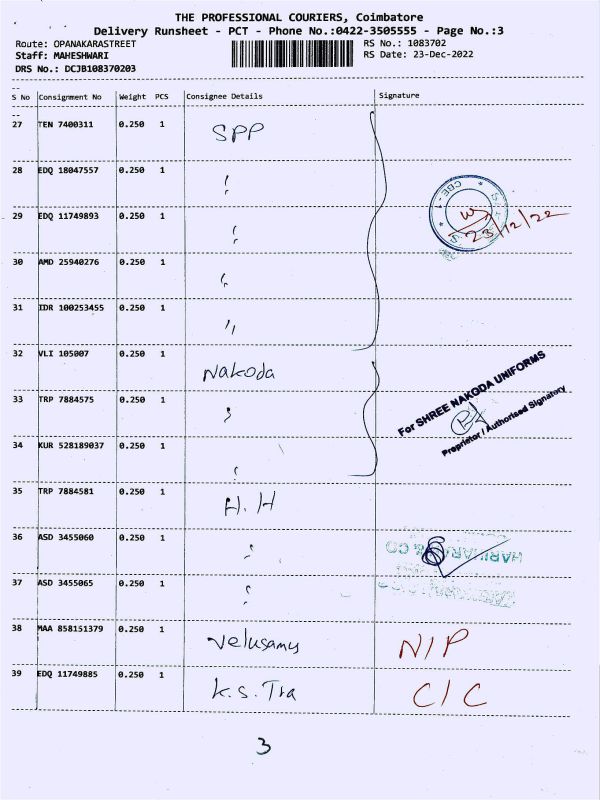 THE PROFESSIONAL COURIERS, Coimbatore
Delivery Runsheet - PCT - Phone No.:0422-3505555 - Page No.:3
Route: OPANAKARASTREET RS No.: 1083702
Staff: MAHESHWARI RS Date: 23-Dec-2022
DRS No.: DCJB108370203
S No Consignment No Weight PCS Consignee Details Signature
27 TEN 7400311 0.250 1 SPP
28 EDQ 18047557 0.250 1 "
29 EDQ 11749893 0.250 1 "
CBE - 1
23/12/22
30 AMD 25940276 0.250 1 "
31 IDR 100253455 0.250 1 "
32 VLI 105007 0.250 1 Nakoda
For SHREE NAKODA UNIFORMS
33 TRP 7884575 0.250 1 "
Proprietor / Authorised Signatory
34 KUR 528189037 0.250 1 "
35 TRP 7884581 0.250 1 H.H
36 ASD 3455060 0.250 1 "
& CO
37 ASD 3455065 0.250 1 "
38 MAA 858151379 0.250 1 Velusamy N/P
39 EDQ 11749885 0.250 1 K.S. Tra C/C
3